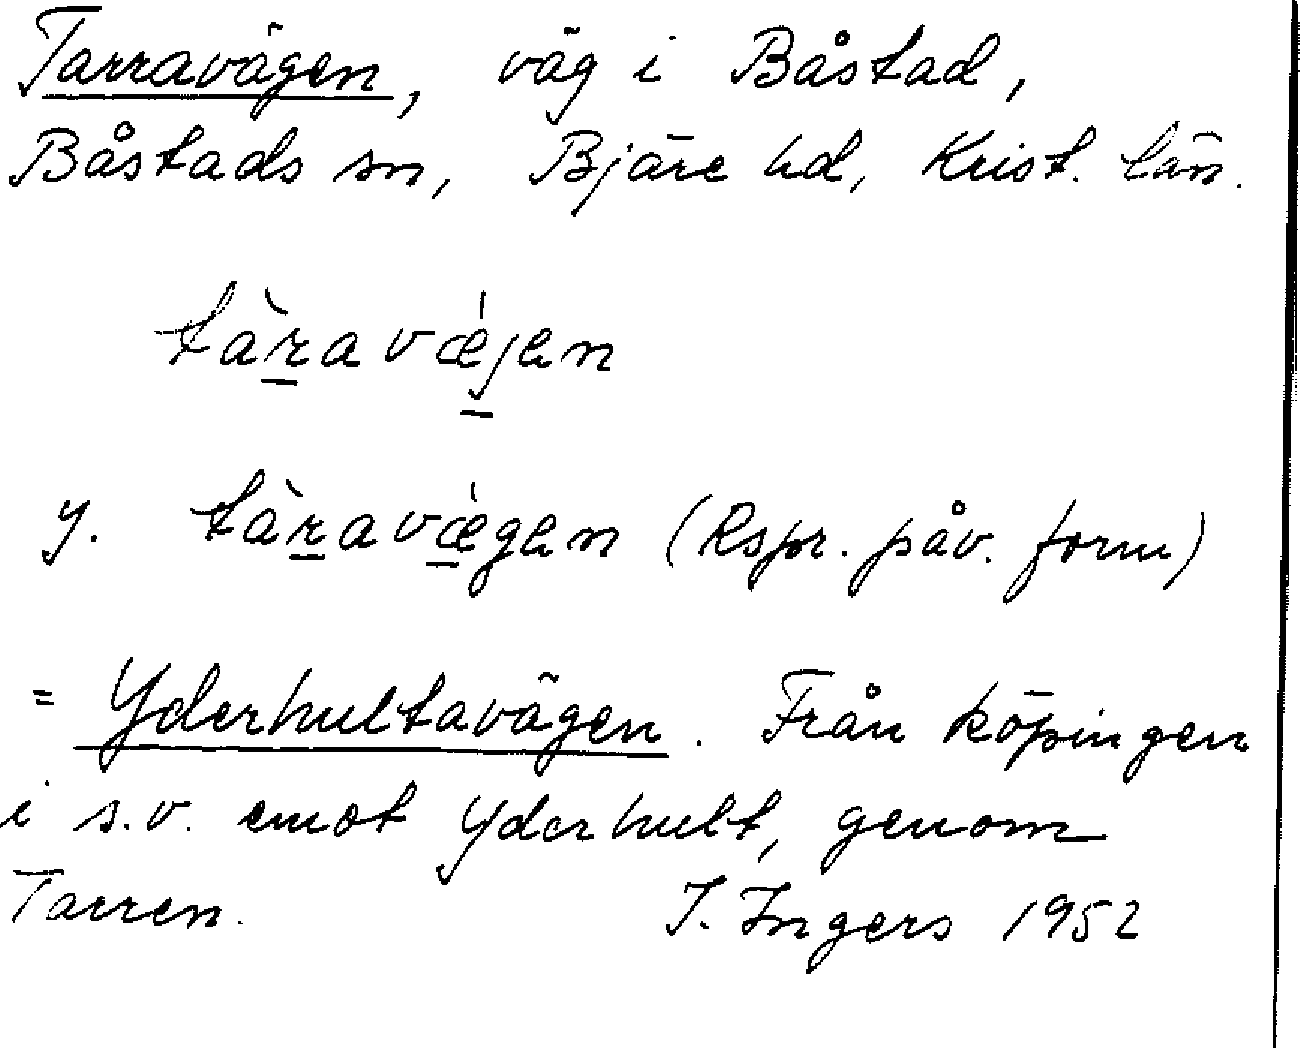 Tarravägen, väg i Båstad,
Båstads sn, Bjäre hd, Krist. län.
tàr̲avǽj̲en
y. tàr̲avǽ̲gen (Rspr. påv. form)
= Yderhultavägen. Från köpingen
i s.v. emot Yderhult, genom
Tarren. I. Ingers 1952